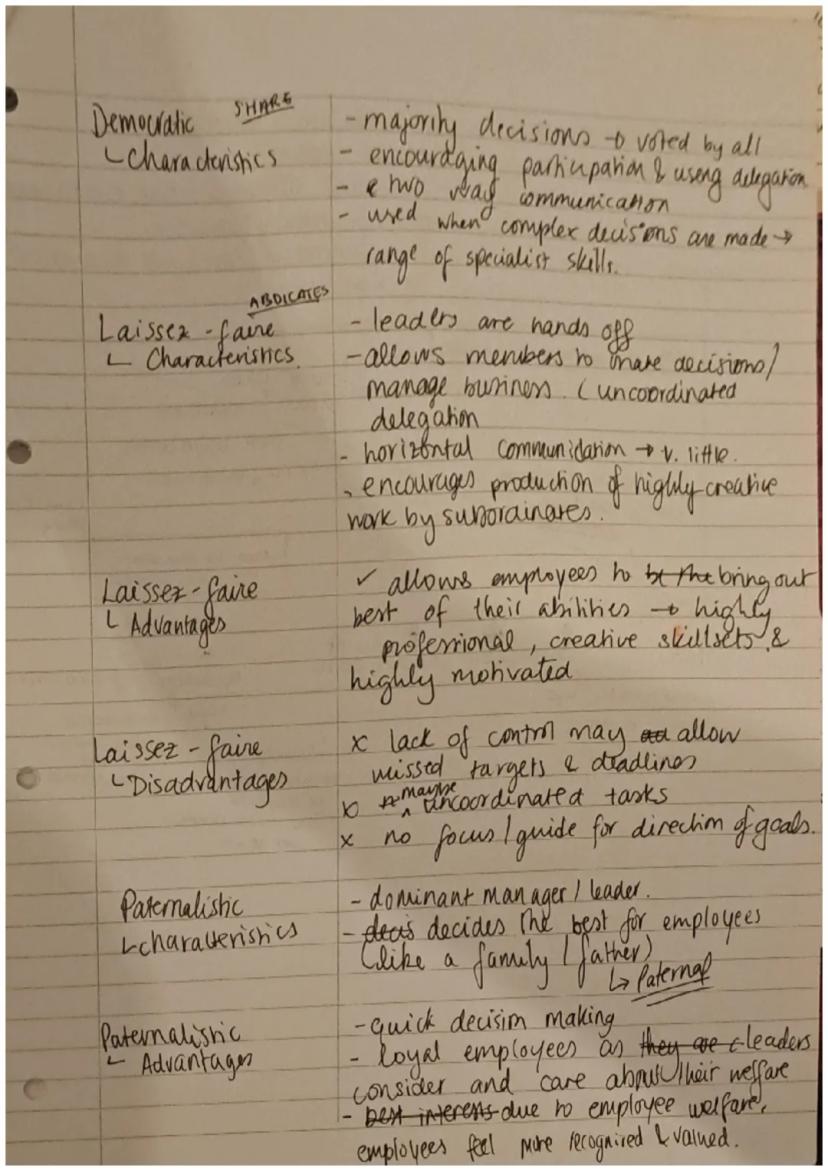 Democratic SHARE
- majority decisions → voted by all
↳ Characteristics
- encouraging participation & useng delegation
- two way communication
- used when complex decisions are made →
range of specialist skills.
Laissez-faire ABDICATES
- leaders are hands off
↳ Characteristics.
- allows members to make decisions/
manage business. (uncoordinated
delegation
- horizontal communidation → v. little.
- encourages production of highly creative
work by subordinates.
Laissez-faire
✓ allows employees to be the bring out
↳ Advantages
best of their abilities → highly
professional, creative skillsets &
highly motivated
Laissez-faire
x lack of control may allow
↳ Disadvantages
missed targets & deadlines
x maybe uncoordinated tasks
x no focus/guide for direction of goals.
Paternalistic
- dominant manager/leader.
↳ characteristics
- decis decides the best for employees
(like a family/father)
↳ Paternal
Paternalistic
- quick decision making
↳ Advantages
- loyal employees as they are leaders
consider and care about their welfare
- best interests due to employee welfare,
employees feel more recognised & valued.